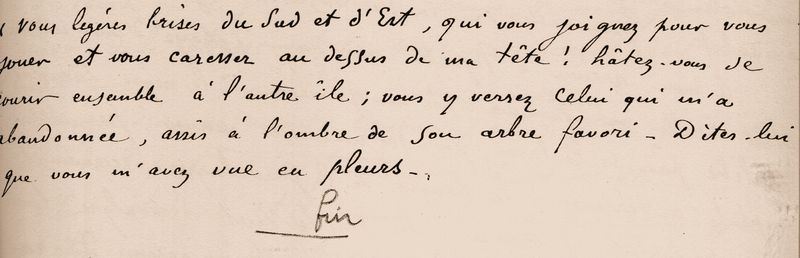 vous legères brises du Sud et d'Est, qui vous joignez pour vous
jouer et vous caresser au dessus de ma tête! hâtez-vous de
courir ensemble à l'autre île; vous y verrez Celui qui m'a
abandonnée, assis à l'ombre de son arbre favori - Dites-lui
que vous m'avez vue en pleurs-.
fin